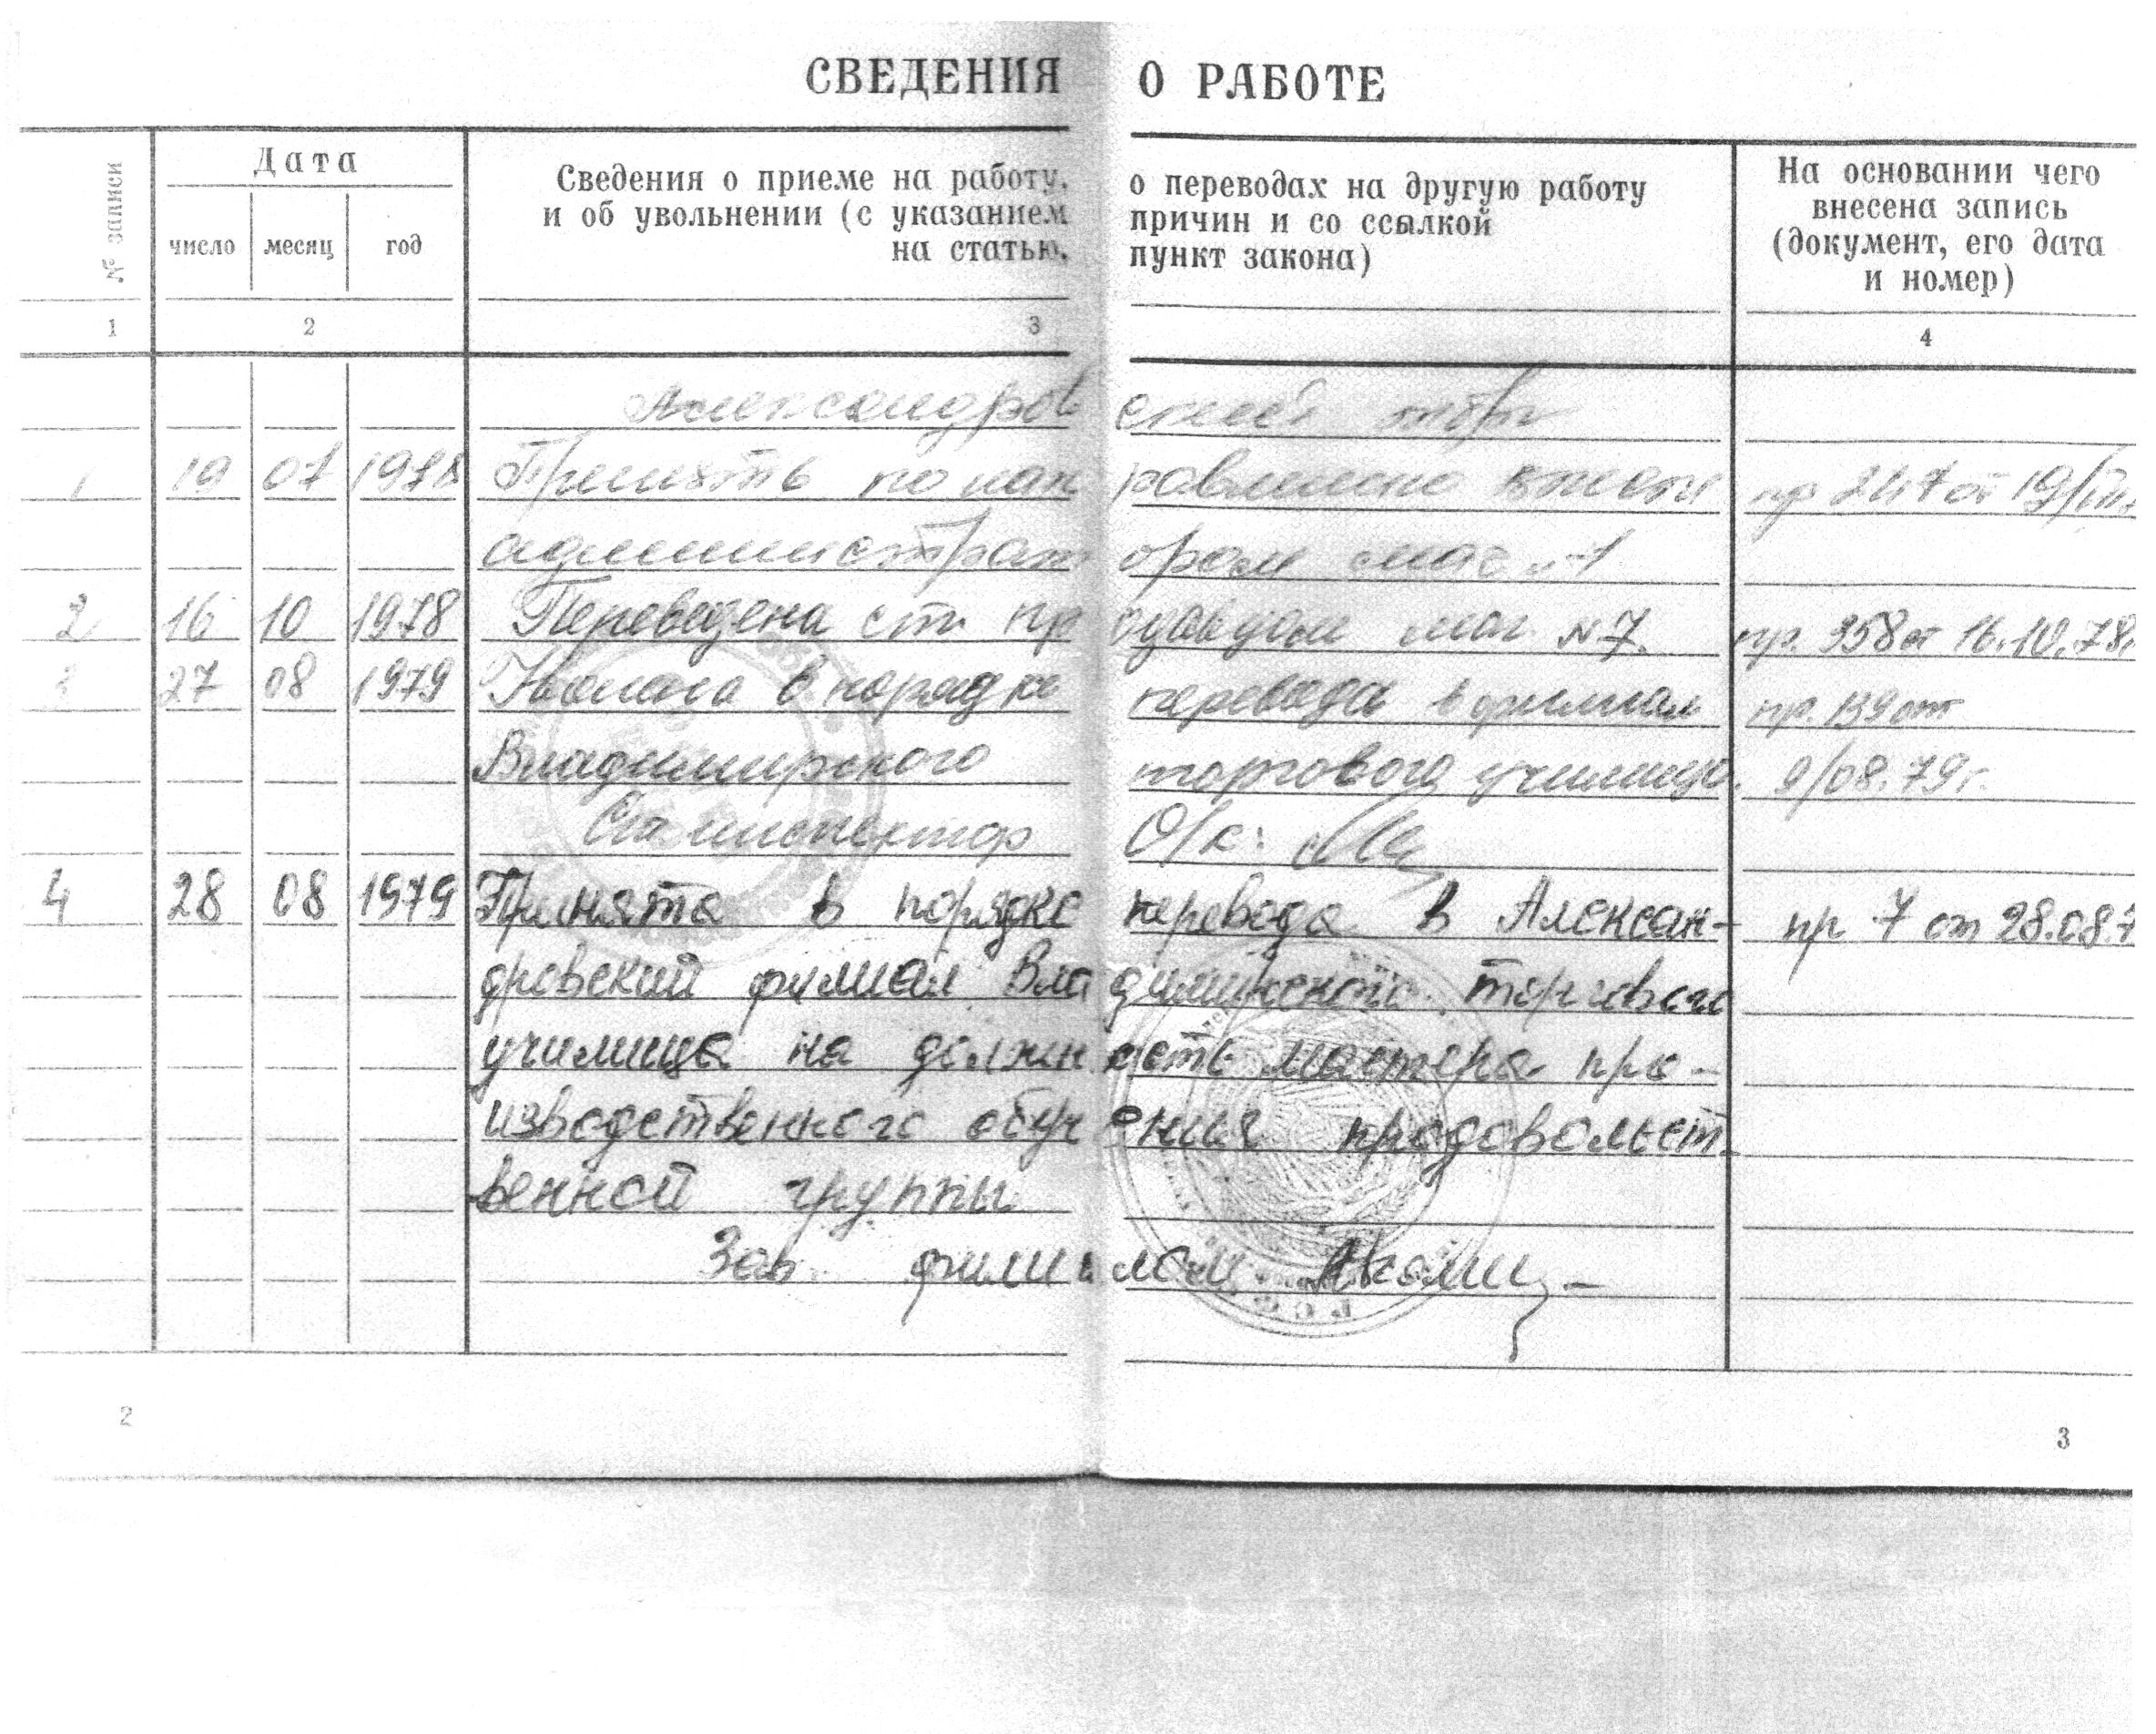 СВЕДЕНИЯ О РАБОТЕ
№ записи
Дата
число месяц год
Сведения о приеме на работу, о переводах на другую работу
и об увольнении (с указанием причин и со ссылкой
на статью, пункт закона)
На основании чего
внесена запись
(документ, его дата
и номер)
1 2 3 4
Александровский
1 19 07 1978 Принять по направлению пр 247 от
администратором маг N 1
2 16 10 1978 Переведена ст. продавцом маг. N 7. пр. 358 от 16.10.78г.
3 27 08 1979 Уволена в порядке перевода в филиал пр. 139 от
Владимирского торгового училища. 9/08.79г.
Ст. инспектор О/к:
4 28 08 1979 Принята в порядке перевода в Алексан- пр 7 от 28.08.7
дровский филиал Владимирского торгового
училища на должность мастера про-
изводственного обучения продовольст-
венной группы
Зав. филиалом
2 3